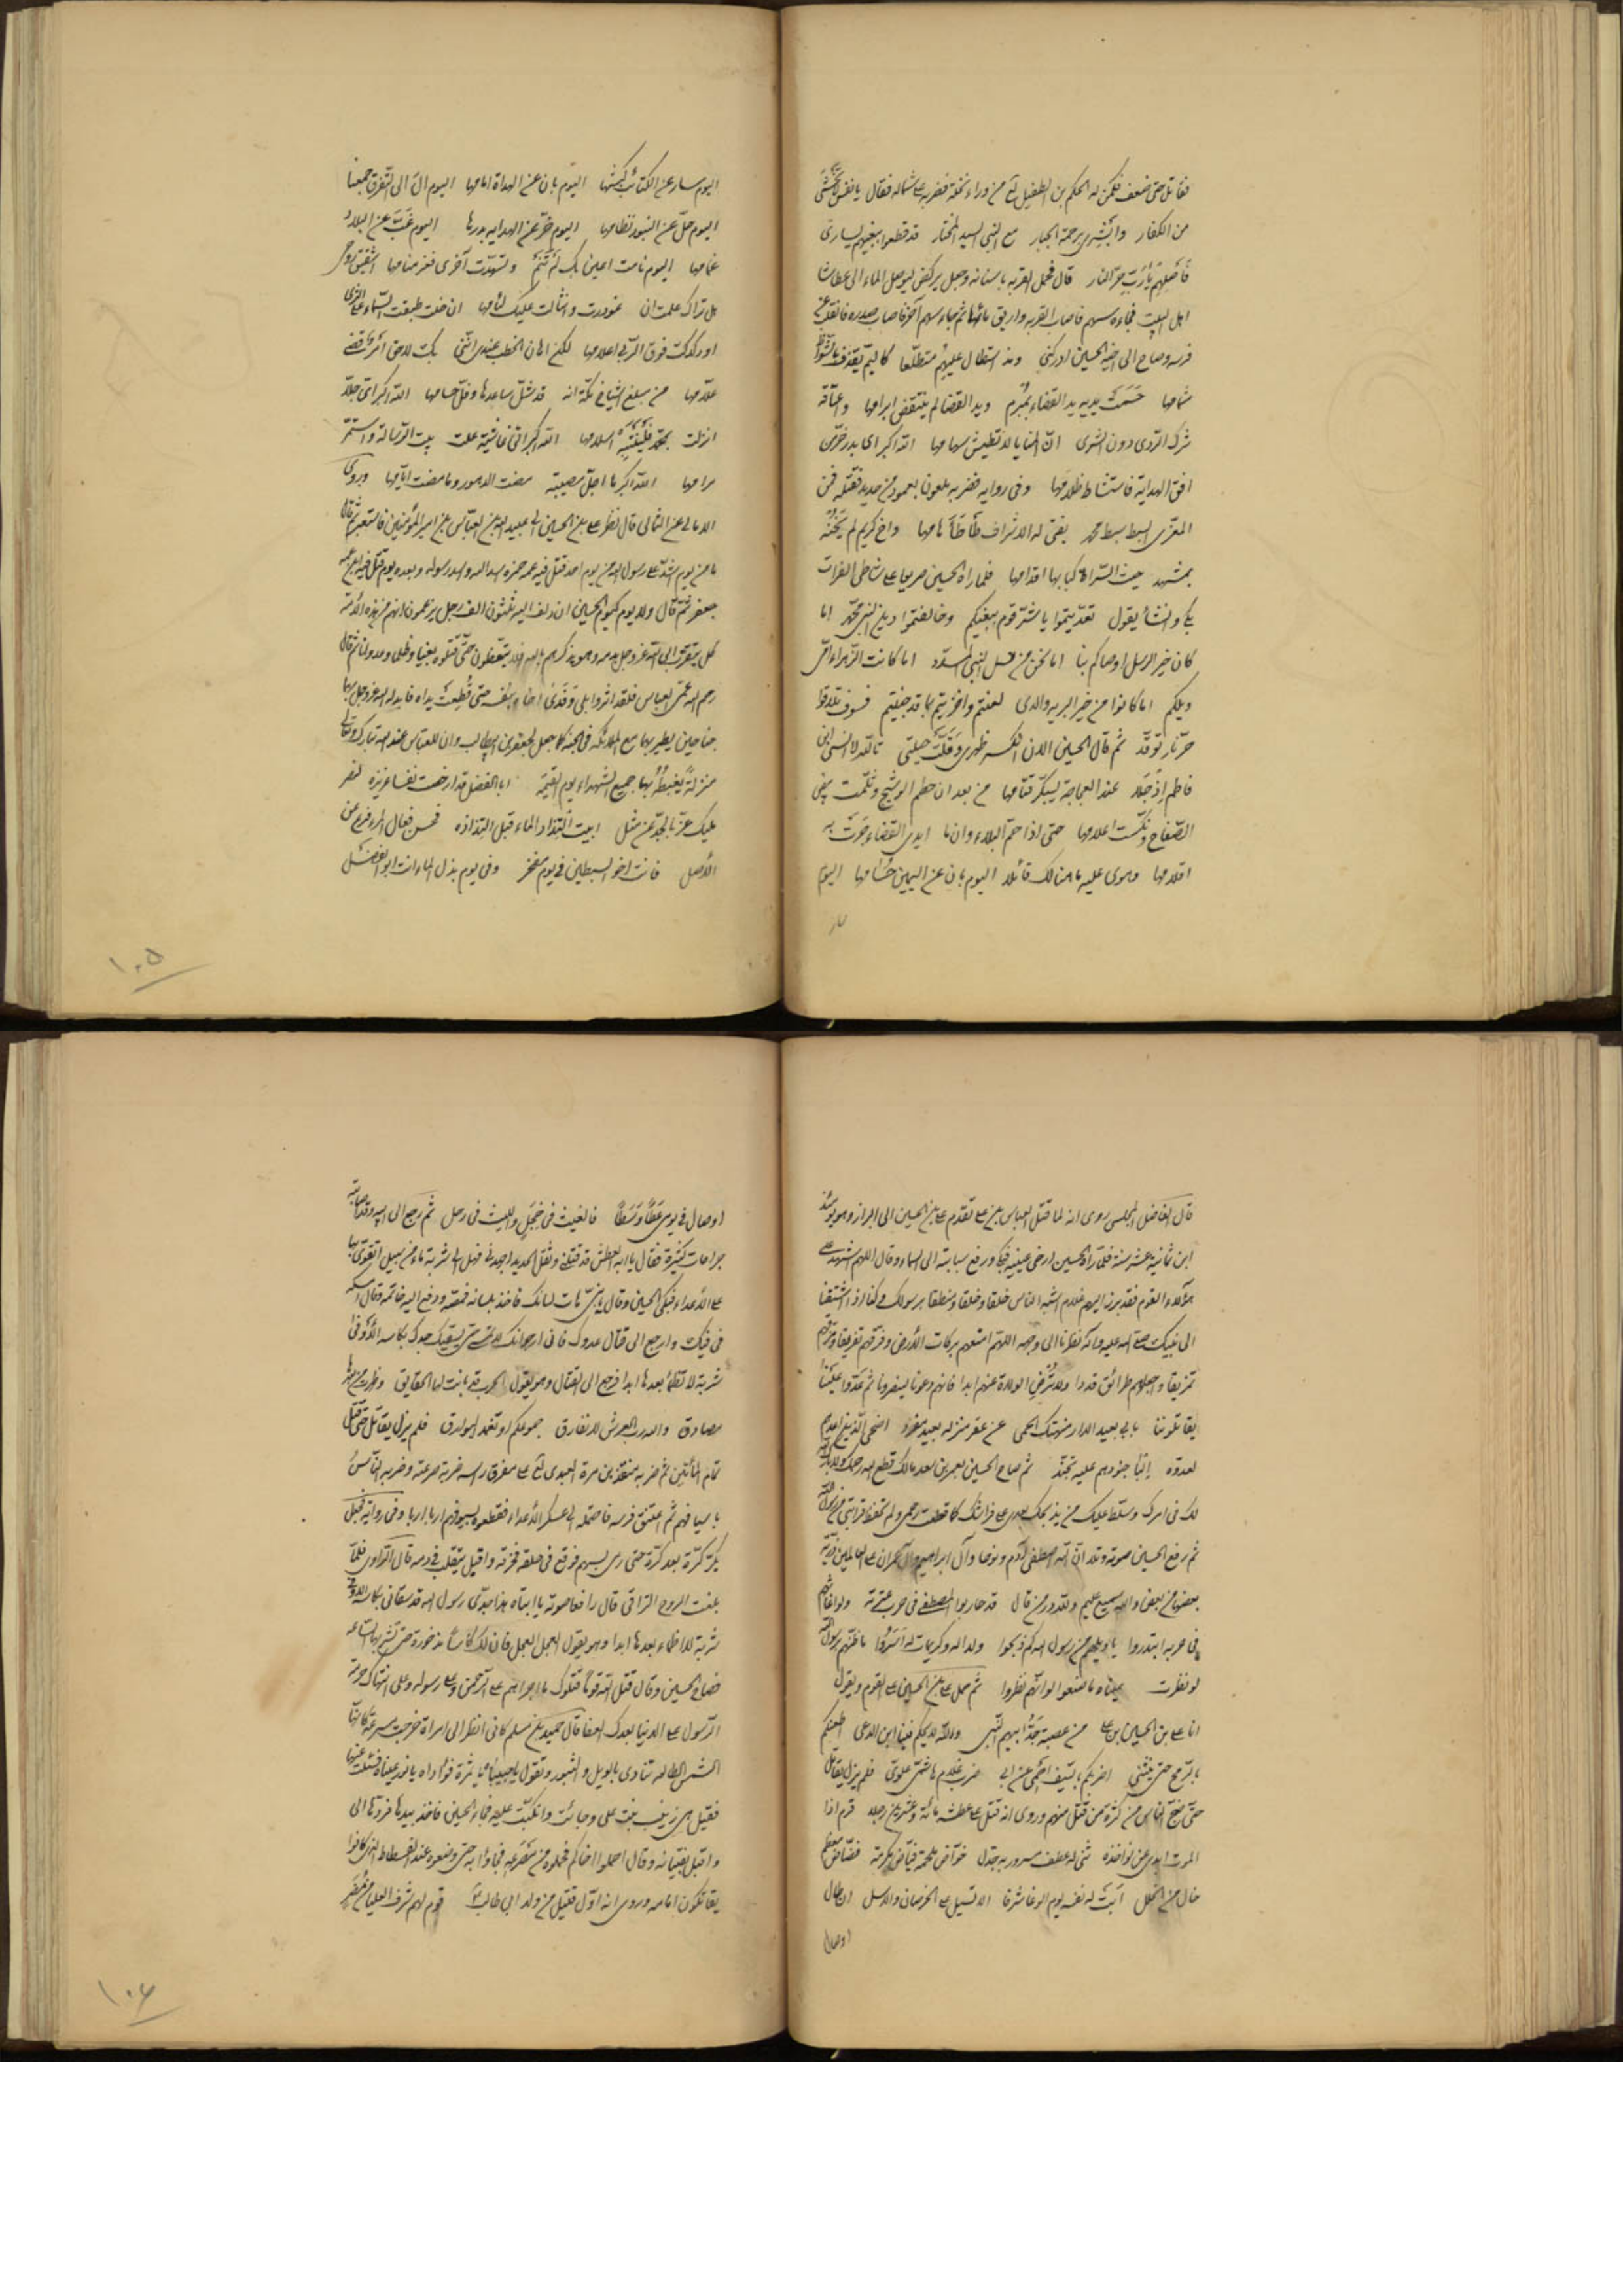 فقاتل حتى ضعف فكمن له الحكم بن الطفيل لع من وراء نخلة فضربه على شماله فقال يا نفس لا تخشى
من الكفار وابشرى برحمة الجبار مع النبى السيد المختار قد قطعوا ببغيهم يسارى
فاصلهم يا رب حر النار قال فحمل القربه باسنانه وجعل يركض ليوصل الماء الى عطاشا
اهل البيت فجاءه سهم فاصاب القربه واريق ماؤها ثم جاء سهم آخر فاصاب صدره فانقلب عن
فرسه وصاح الى اخيه الحسين ادركنى ومذ استطال عليهم متطلعا كاليم يقذف بالشواظ
شمامها حسمت يديه يد القضاء بمبرم ويد القضا لم ينتقض ابرامها واعتاقه
شرك الردى دون الشرى ان المنايا لا تطيش سهامها الله اكبر اى بدر خر من
افق الهداية فاستشاط ظلامها وفى روايه فضربه ملعون بعمود من حديد فقتله فمن
المعزى السبط سبط محمد بفتى له الاشراف طأطأ هامها واخ كريم لم يخنه
بمشهد حيث السراة كبا بها اقدامها فلما رآه الحسين صريعا على شاطى الفرات
بكى وانشأ يقول تعديتموا يا شر قوم ببغيكم وخالفتموا دين النبى محمد اما
كان خير الرسل اوصاكم بنا اما نحن من نسل النبى المسدد اما كانت الزهراء امى
ويلكم اما كانوا من خير البريه والدى لعنتم واخزيتم بما قد جنيتم فسوف تلاقوا
حر نار توقد ثم قال الحسين الان انكسر ظهرى وقلت حيلتى تالله لا انسى ابن
فاطم اذ جلا عند العجاجة يسبكر قتامها من بعد ان حطم الوشيج وثلمت بيض
الصفاح ونكست اعلامها حتى اذا حم البلاء وانما ايدى القضاء جرت به
اقلامها وهوى عليه ما هنالك قائلا اليوم بان عن اليمين حسامها اليوم
اليوم سار عن الكتائب كبشها اليوم بان عن الهداة امامها اليوم آل الى التفرق جمعنا
اليوم حل عن البنود نظامها اليوم خر عن الهدايه بدرها اليوم غب عن البلاد
غمامها اليوم نامت اعين بك لم تنم وتسهدت اخرى فعز منامها اشقيق روحى
هل تراك علمت ان غودرت وانثالت عليك لئامها ان خلت طبقت السماء على الثرى
او دكدكت فوق الربى اعلامها لكن اهان الخطب عندى اننى بك لاحق امر قضى
علامها من مبلغ اشياخ مكة انه قد شل ساعدها وفل حسامها الله اكبر اى جلا
انزلت بمحمد اسلامها الله اكبر اى غاشية علت بيت الرسالة واستمر
مرامها الله اكبر ما اجل مصيبته مضت الدهور وما مضت ايامها وروى
الامالى عن الثمالى قال نظر على بن الحسين الى عبيد الله بن العباس بن امير المؤمنين فاستعبر ثم قال
ما من يوم اشد على رسول الله من يوم احد قتل فيه عمه حمزه اسد الله واسد رسوله وبعده يوم قتل فيه ابن عمه
جعفر ثم قال ولا يوم كيوم الحسين ازدلف اليه ثلثون الف رجل يزعمون انهم من هذه الامة
كل يتقرب الى الله عز وجل بدمه وهو يذكرهم بالله فلا يتعظون حتى قتلوه بغيا وظلما وعدوانا ثم قال
رحم الله عمى العباس فلقد آثر وابلى وفدى اخاه بنفسه حتى قطعت يداه فابدله الله عز وجل بهما
جناحين يطير بهما مع الملائكه فى الجنة كما جعل لجعفر بن ابيطالب وان للعباس عند الله تبارك وتعالى
منزلة يغبطه بها جميع الشهداء يوم القيمة ابا الفضل قد ارخصت نفسا عزيزه لنصر
مليك عز بالمجد عن مثل ابيت التذاذ الماء قبل التذاذه فحسن فعال المرء فرع من
الاصل فانت اخو السبطين فى يوم مفخر وفى يوم بذل الماء انت ابو الفضل
١٠٥
قال الفاضل المجلسى روى انه لما قتل العباس بن على تقدم على بن الحسين الى البراز وهو يومئذ
ابن ثمانية عشر سنة فلما رآه الحسين ارخى عينيه فبكى ورفع سبابته الى السماء وقال اللهم اشهد على
هؤلاء القوم فقد برز اليهم غلام اشبه الناس خلقا وخلقا ومنطقا برسولك وكنا اذا اشتقنا
الى نبيك صلى الله عليه واله نظرنا الى وجهه اللهم امنعهم بركات الارض وفرقهم تفريقا ومزقهم
تمزيقا واجعلهم طرائق قددا ولا ترض الولاة عنهم ابدا فانهم دعونا لينصرونا ثم عدوا علينا
يقاتلوننا بابى بعيد الدار منهتك الحمى عن عقر منزله بعيد مفرد اضحى الذين
لعدوه البا جنودهم عليه تجند ثم صاح الحسين بعمر بن سعد مالك قطع الله رحمك ولا بارك الله
لك فى امرك وسلط عليك من يذبحك بعدى على فراشك كما قطعت رحمى ولم تحفظ قرابتى من رسول الله
ثم رفع الحسين صوته وتلا ان الله اصطفى آدم ونوحا وآل ابراهيم وآل عمران على العالمين ذرية
بعضها من بعض والله سميع عليم ولله در من قال قد حاربوا المصطفى فى حرب عترته
فى حربه ابتدروا يا ويلهم من رسول الله كم ذبحوا ولدا له وكريمات له اسروا ما ظنهم برسول الله
لو نظرت عيناه ما صنعوا لو انهم نظروا ثم حمل على بن الحسين على القوم ويقول
انا على بن الحسين بن على من عصبة جد ابيهم النبى والله لا يحكم فينا ابن الدعى اطعنكم
بالرمح حتى ينثنى اضربكم بالسيف احمى عن ابى ضرب غلام هاشمى علوى فلم يزل يقاتل
حتى ضج الناس من كثرة من قتل منهم وروى انه قتل على عطشه مائة وعشرين رجلا قرم اذا
الموت ابدى عن نواجذه ثنى له عطف مسرور به جذل خواض ملحمة فياض مكرمة فضاض معظم
خال من الخلل ابت له نفسه يوم الوغا شرفا الا تسيل على الخرصان والاسل ان طال
او صال
او صال فى يومى عطا وسطا فالغيث فى خجل والليث فى وجل ثم رجع الى ابيه وقد اصابته
جراحات كثيرة فقال يا ابه العطش قد قتلنى وثقل الحديد اجهدنى فهل الى شربة ماء من سبيل اتقوى بها
على الاعداء فبكى الحسين وقال يا بنى هات لسانك فاخذ بلسانه فمصه ودفع اليه خاتمه وقال امسكه
فى فيك وارجع الى قتال عدوك فانى ارجو انك لا تمسى حتى يسقيك جدك بكاسه الاوفى
شربة لا تظمأ بعدها ابدا فرجع الى القتال وهو يقول الحرب قد بانت لها الحقايق وظهرت من بعدها
مصادق والله رب العرش لا نفارق جموعكم او تغمد البوارق فلم يزل يقاتل حتى قتل
تمام المأتين ثم ضربه منقذ بن مرة العبدى لع على مفرق راسه ضربة صرعته وضربه الناس
باسيافهم ثم اعتنق فرسه فاحتمله الى عسكر الاعداء فقطعوه بسيوفهم اربا اربا وفى رواية فجعل
يكر كرة بعد كرة حتى رمى بسهم فوقع فى حلقه فخرقه واقبل يتقلب فى دمه قال الراوى فلما
بلغت الروح التراقى قال رافعا صوته يا ابتاه هذا جدى رسول الله قد سقانى بكاسه الاوفى
شربة لا اظماء بعدها ابدا وهو يقول العجل العجل فان لك كأسا مذخورة حتى تشربها الساعه
فصاح الحسين وقال قتل الله قوما قتلوك ما اجراهم على الرحمن وعلى رسوله وعلى انتهاك حرمة
الرسول على الدنيا بعدك العفا قال حميد بن مسلم كانى انظر الى امراة خرجت مسرعة كانها
الشمس الطالعه تنادى بالويل والثبور وتقول يا حبيباه يا ثمرة فؤاداه يا نور عيناه فسئلت عنها
فقيل هى زينب بنت على وجائت وانكبت عليه فجاء الحسين فاخذ بيدها فردها الى
واقبل بفتيانه وقال احملوا اخاكم فحملوه من مصرعه فجاؤا به حتى وضعوه عند الفسطاط الذى كانوا
يقاتلون امامه وروى انه اول قتيل من ولد ابى طالب قوم لهم شرف العليا من مضر
١٠٦